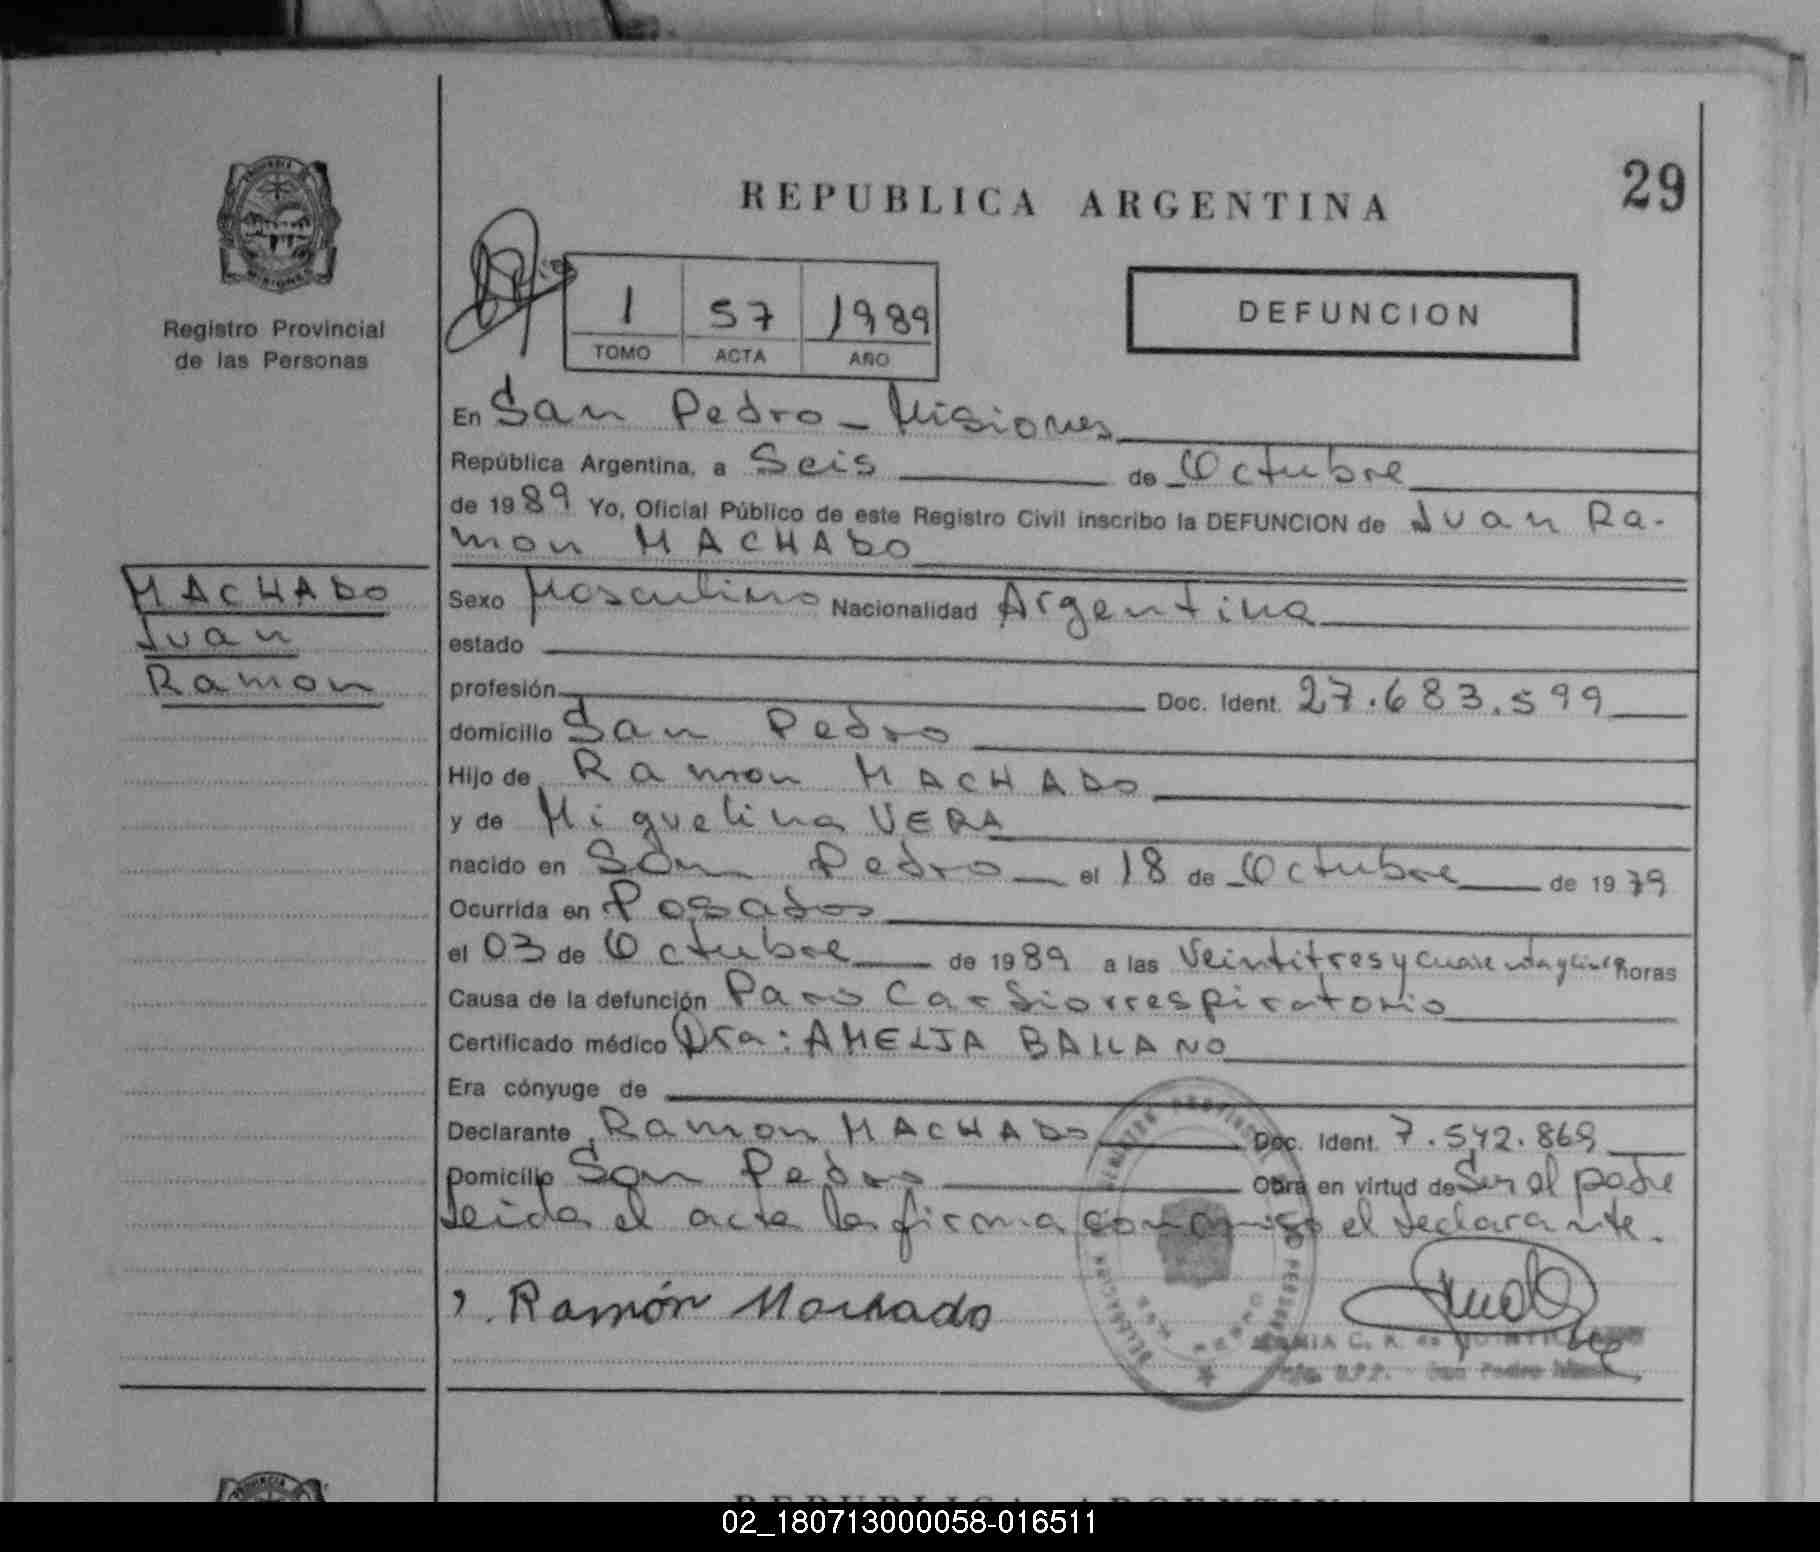 REPUBLICA ARGENTINA
29
Registro Provincial
de las Personas
1 57 1989
TOMO ACTA AÑO
DEFUNCION
En San Pedro - Misiones
República Argentina, a Seis de Octubre
de 1989 Yo, Oficial Público de este Registro Civil inscribo la DEFUNCION de Juan Ra-
mon MACHADO
MACHADO
Juan
Ramon
Sexo Masculino Nacionalidad Argentina
estado
profesión Doc. Ident. 27.683.599
domicilio San Pedro
Hijo de Ramon MACHADO
y de Miguelina VERA
nacido en San Pedro el 18 de Octubre de 1979
Ocurrida en Posadas
el 03 de Octubre de 1989 a las Veintitres y cuarenta y cinco horas
Causa de la defunción Paro Cardiorrespiratorio
Certificado médico Dra: AMELIA BAILANO
Era cónyuge de
Declarante Ramon MACHADO Doc. Ident. 7.542.869
Domicilio San Pedro Obra en virtud de Ser el padre
Leida el acta la firma conmigo el declarante.
Ramón Machado
MARIA C. R. de
San Pedro
02_180713000058-016511